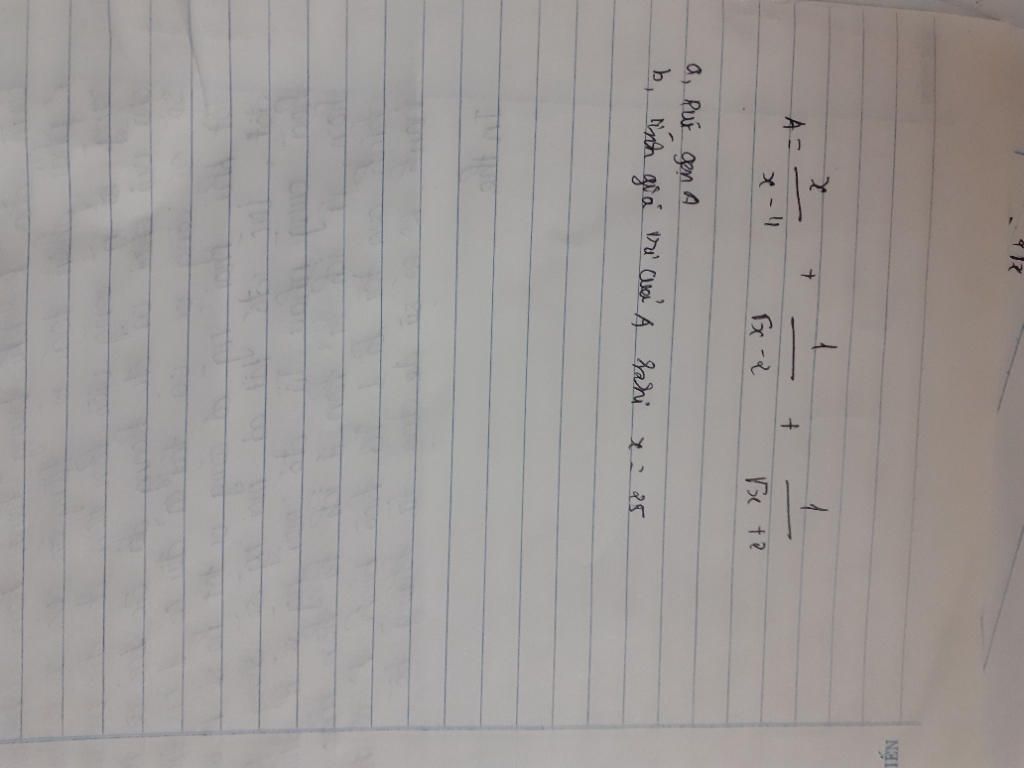 A = x/(x - 4) + 1/(√x - 2) + 1/(√x + 2)
a, Rút gọn A
b, Tính giá trị của A khi x = 25
IẾN